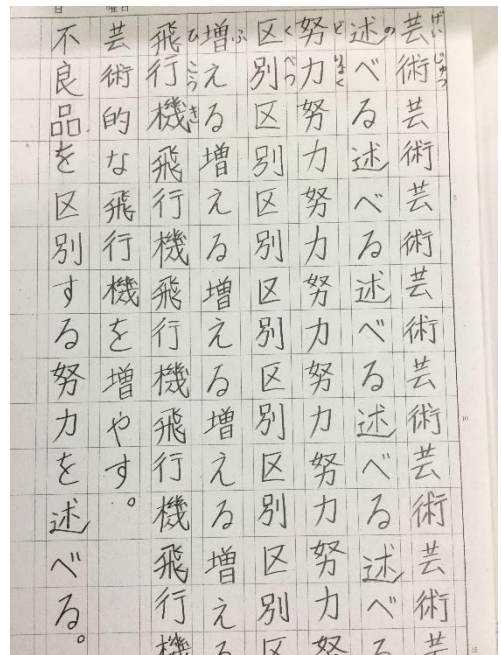 げい じゅつ
芸術芸術芸術芸術芸術芸術芸術芸
の
述べる述べる述べる述べる述べる
ど りょく
努力努力努力努力努力努力努力努
く べつ
区別区別区別区別区別区別区別区
ふ
増える増える増える増える増える
ひ こう き
飛行機飛行機飛行機飛行機飛行機
芸術的な飛行機を増やす。
不良品を区別する努力を述べる。